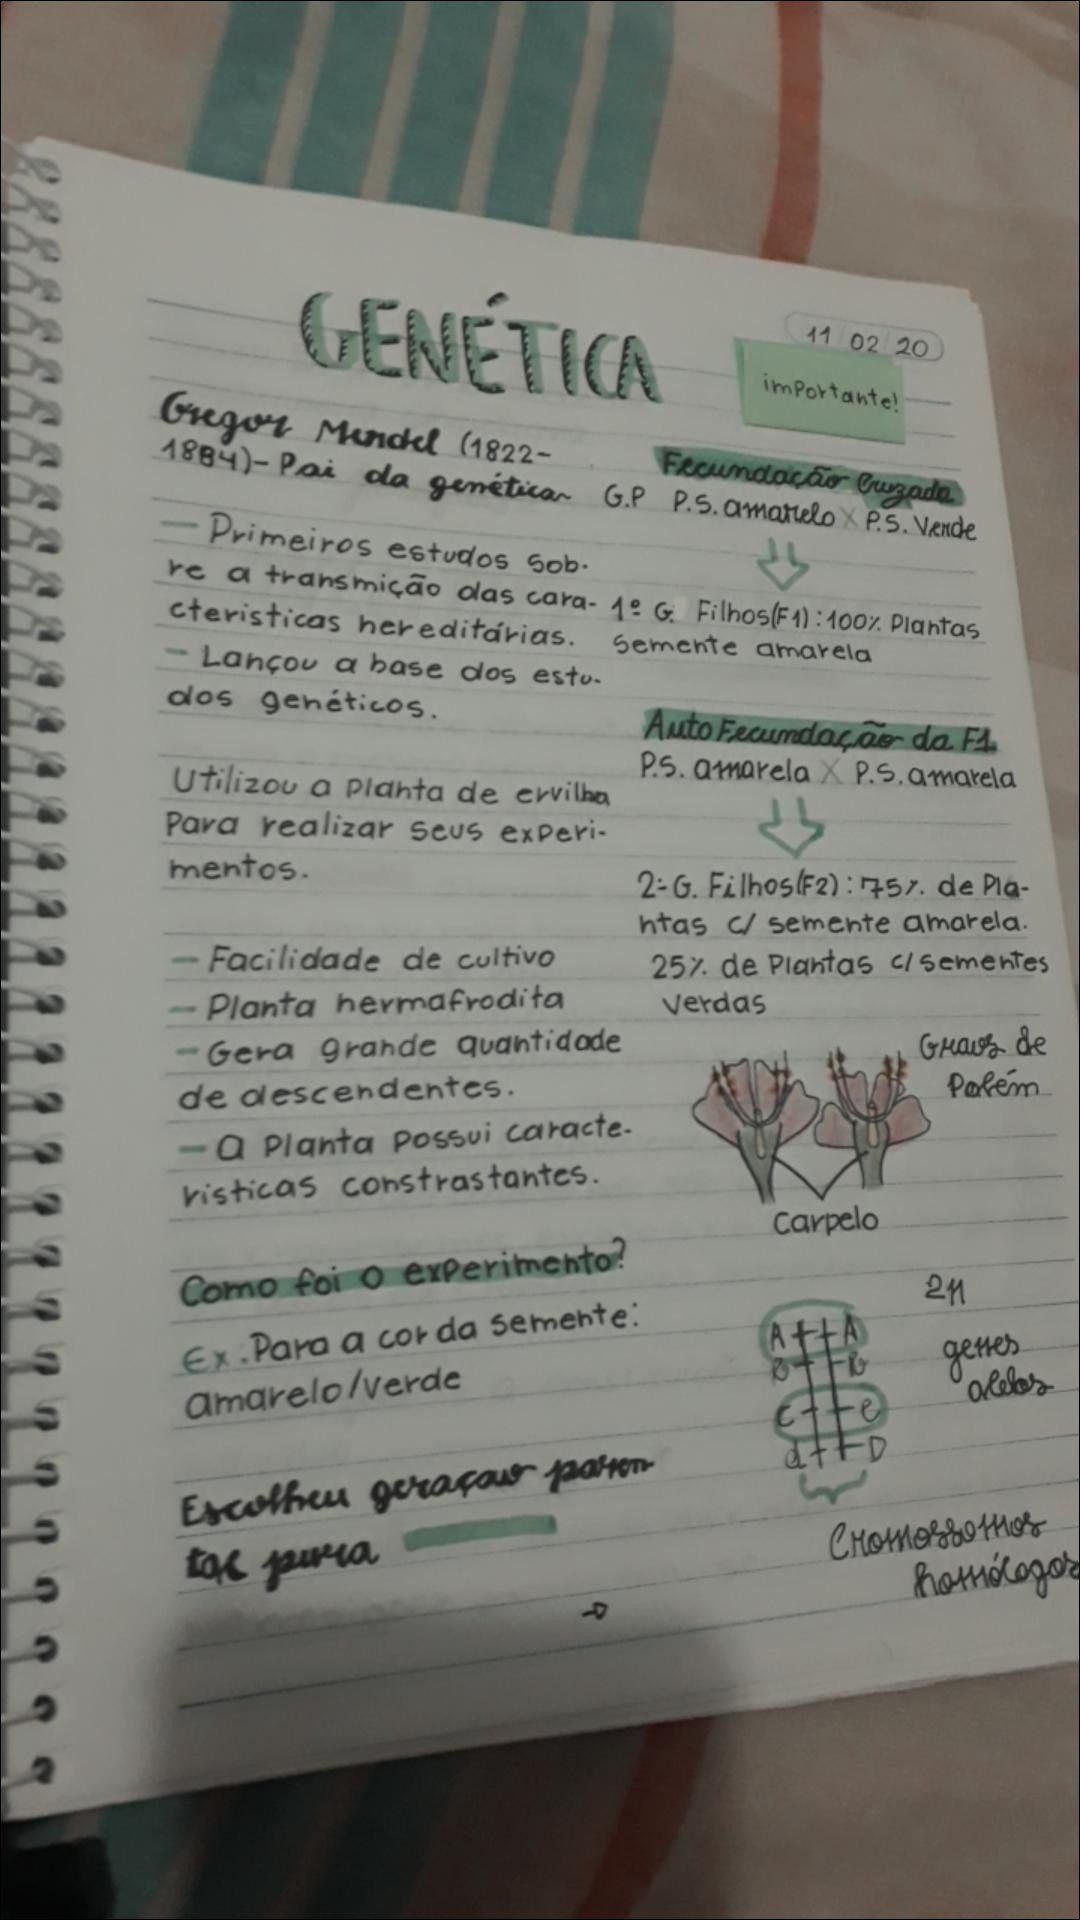 GENÉTICA
11 02 20
importante!
Gregor Mendel (1822-
1884)-Pai da genética
- Primeiros estudos sob-
re a transmição das cara-
cteristicas hereditárias.
- Lançou a base dos estu-
dos genéticos.
Utilizou a planta de ervilha
para realizar seus experi-
mentos.
- Facilidade de cultivo
- Planta hermafrodita
- Gera grande quantidade
de descendentes.
- A planta possui caracte-
risticas constrastantes.
Como foi o experimento?
Ex.: Para a cor da semente:
amarelo/verde
Escolheu geraçao paren
tal pura
→
Fecundação Cruzada
G.P P.S. amarelo X P.S. Verde
1º G. Filhos(F1): 100% Plantas
semente amarela
Auto Fecundação da F1
P.S. amarela X P.S. amarela
2º G. Filhos(F2): 75% de Pla-
ntas c/ semente amarela.
25% de Plantas c/ sementes
verdas
Graos de
Polém
Carpelo
2n
A A
B B
genes
alelos
C c
d D
Cromossomos
homólogos